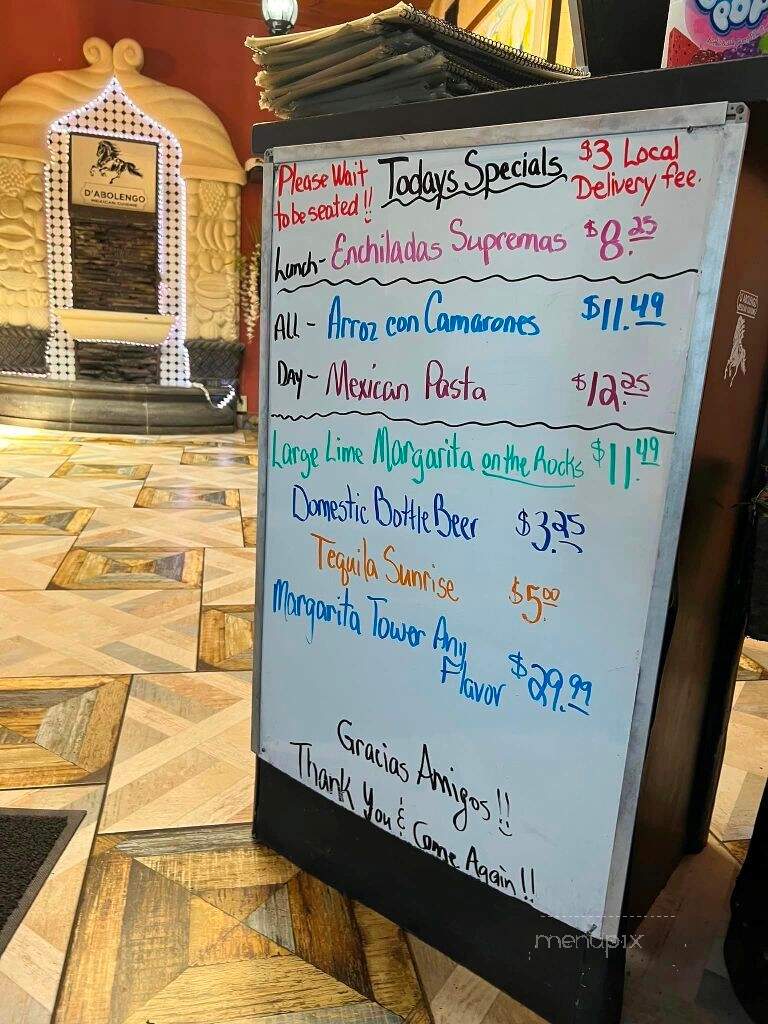 Please Wait
to be seated!!
Todays Specials
$3 Local
Delivery fee.
Lunch- Enchiladas Supremas $8.25
All - Arroz con Camarones $11.49
Day - Mexican Pasta $12.25
Large Lime Margarita on the Rocks $11.49
Domestic Bottle Beer $3.25
Tequila Sunrise $5.00
Margarita Tower Any
Flavor $29.99
Gracias Amigos!!
Thank You & Come Again!!
D'ABOLENGO
MEXICAN CUISINE
D'ABOLENGO
POP
menupix